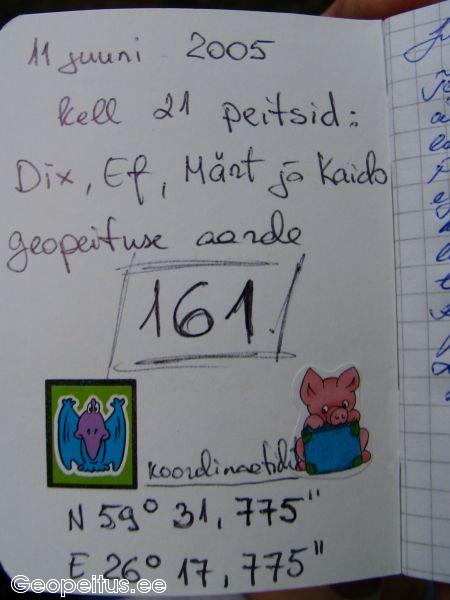 11 juuni 2005
kell 21 peitsid:
Dix, Ef, Märt ja Kaido
geopeituse aarde
161.
koordinaatidit
N 59° 31, 775"
E 26° 17, 775"
Geopeitus.ee